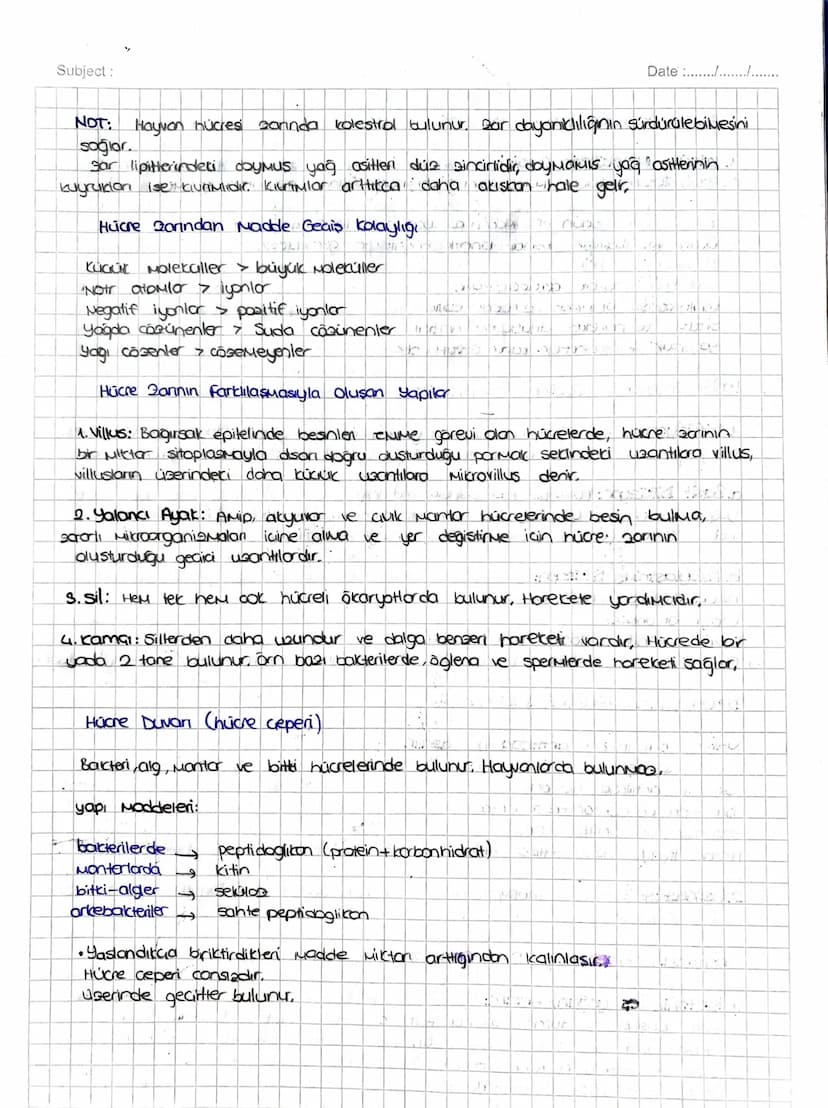 Subject :
Date :......./......./.......
NOT: Hayvan hücresi zarında kolestrol bulunur. Zar dayanıklılığının sürdürülebilmesini
sağlar.
Zar lipitlerindeki doymuş yağ asitleri düz zincirlidir, doymamış yağ asitlerinin
kuyrukları ise kıvrımlıdır. Kıvrımlar arttıkça daha akışkan hale gelir.
Hücre Zarından Madde Geçiş Kolaylığı
Küçük moleküller > büyük moleküller
Nötr atomlar > iyonlar
Negatif iyonlar > pozitif iyonlar
Yağda çözünenler > Suda çözünenler
Yağı çözenler > çözemeyenler
Hücre Zarının Farklılaşmasıyla Oluşan Yapılar
1. Villus: Bağırsak epitelinde besinleri emme görevi olan hücrelerde, hücre zarının
bir miktar sitoplazmayla dışarı doğru oluşturduğu parmak şeklindeki uzantılara villus,
villusların üzerindeki daha küçük uzantılara mikrovillus denir.
2. Yalancı Ayak: Amip, akyuvar ve cıvık mantar hücrelerinde besin bulma,
zararlı mikroorganizmaları içine alma ve yer değiştirme için hücre zarının
oluşturduğu geçici uzantılardır.
3. Sil: Hem tek hem çok hücreli ökaryotlarda bulunur. Harekete yardımcıdır.
4. Kamçı: Sillerden daha uzundur ve dalga benzeri hareketi vardır. Hücrede bir
yada 2 tane bulunur. örn bazı bakterilerde, öglena ve spermlerde hareketi sağlar.
Hücre Duvarı (hücre çeperi)
Bakteri, alg, mantar ve bitki hücrelerinde bulunur. Hayvanlarda bulunmaz.
yapı maddeleri:
bakterilerde → peptidoglikan (protein+karbonhidrat)
mantarlarda → kitin
bitki-algler → selüloz
arkebakteriler → sahte peptidoglikan
• Yaşlandıkça biriktirdikleri madde miktarı arttığından kalınlaşır.
Hücre çeperi cansızdır.
Üzerinde geçitler bulunur.